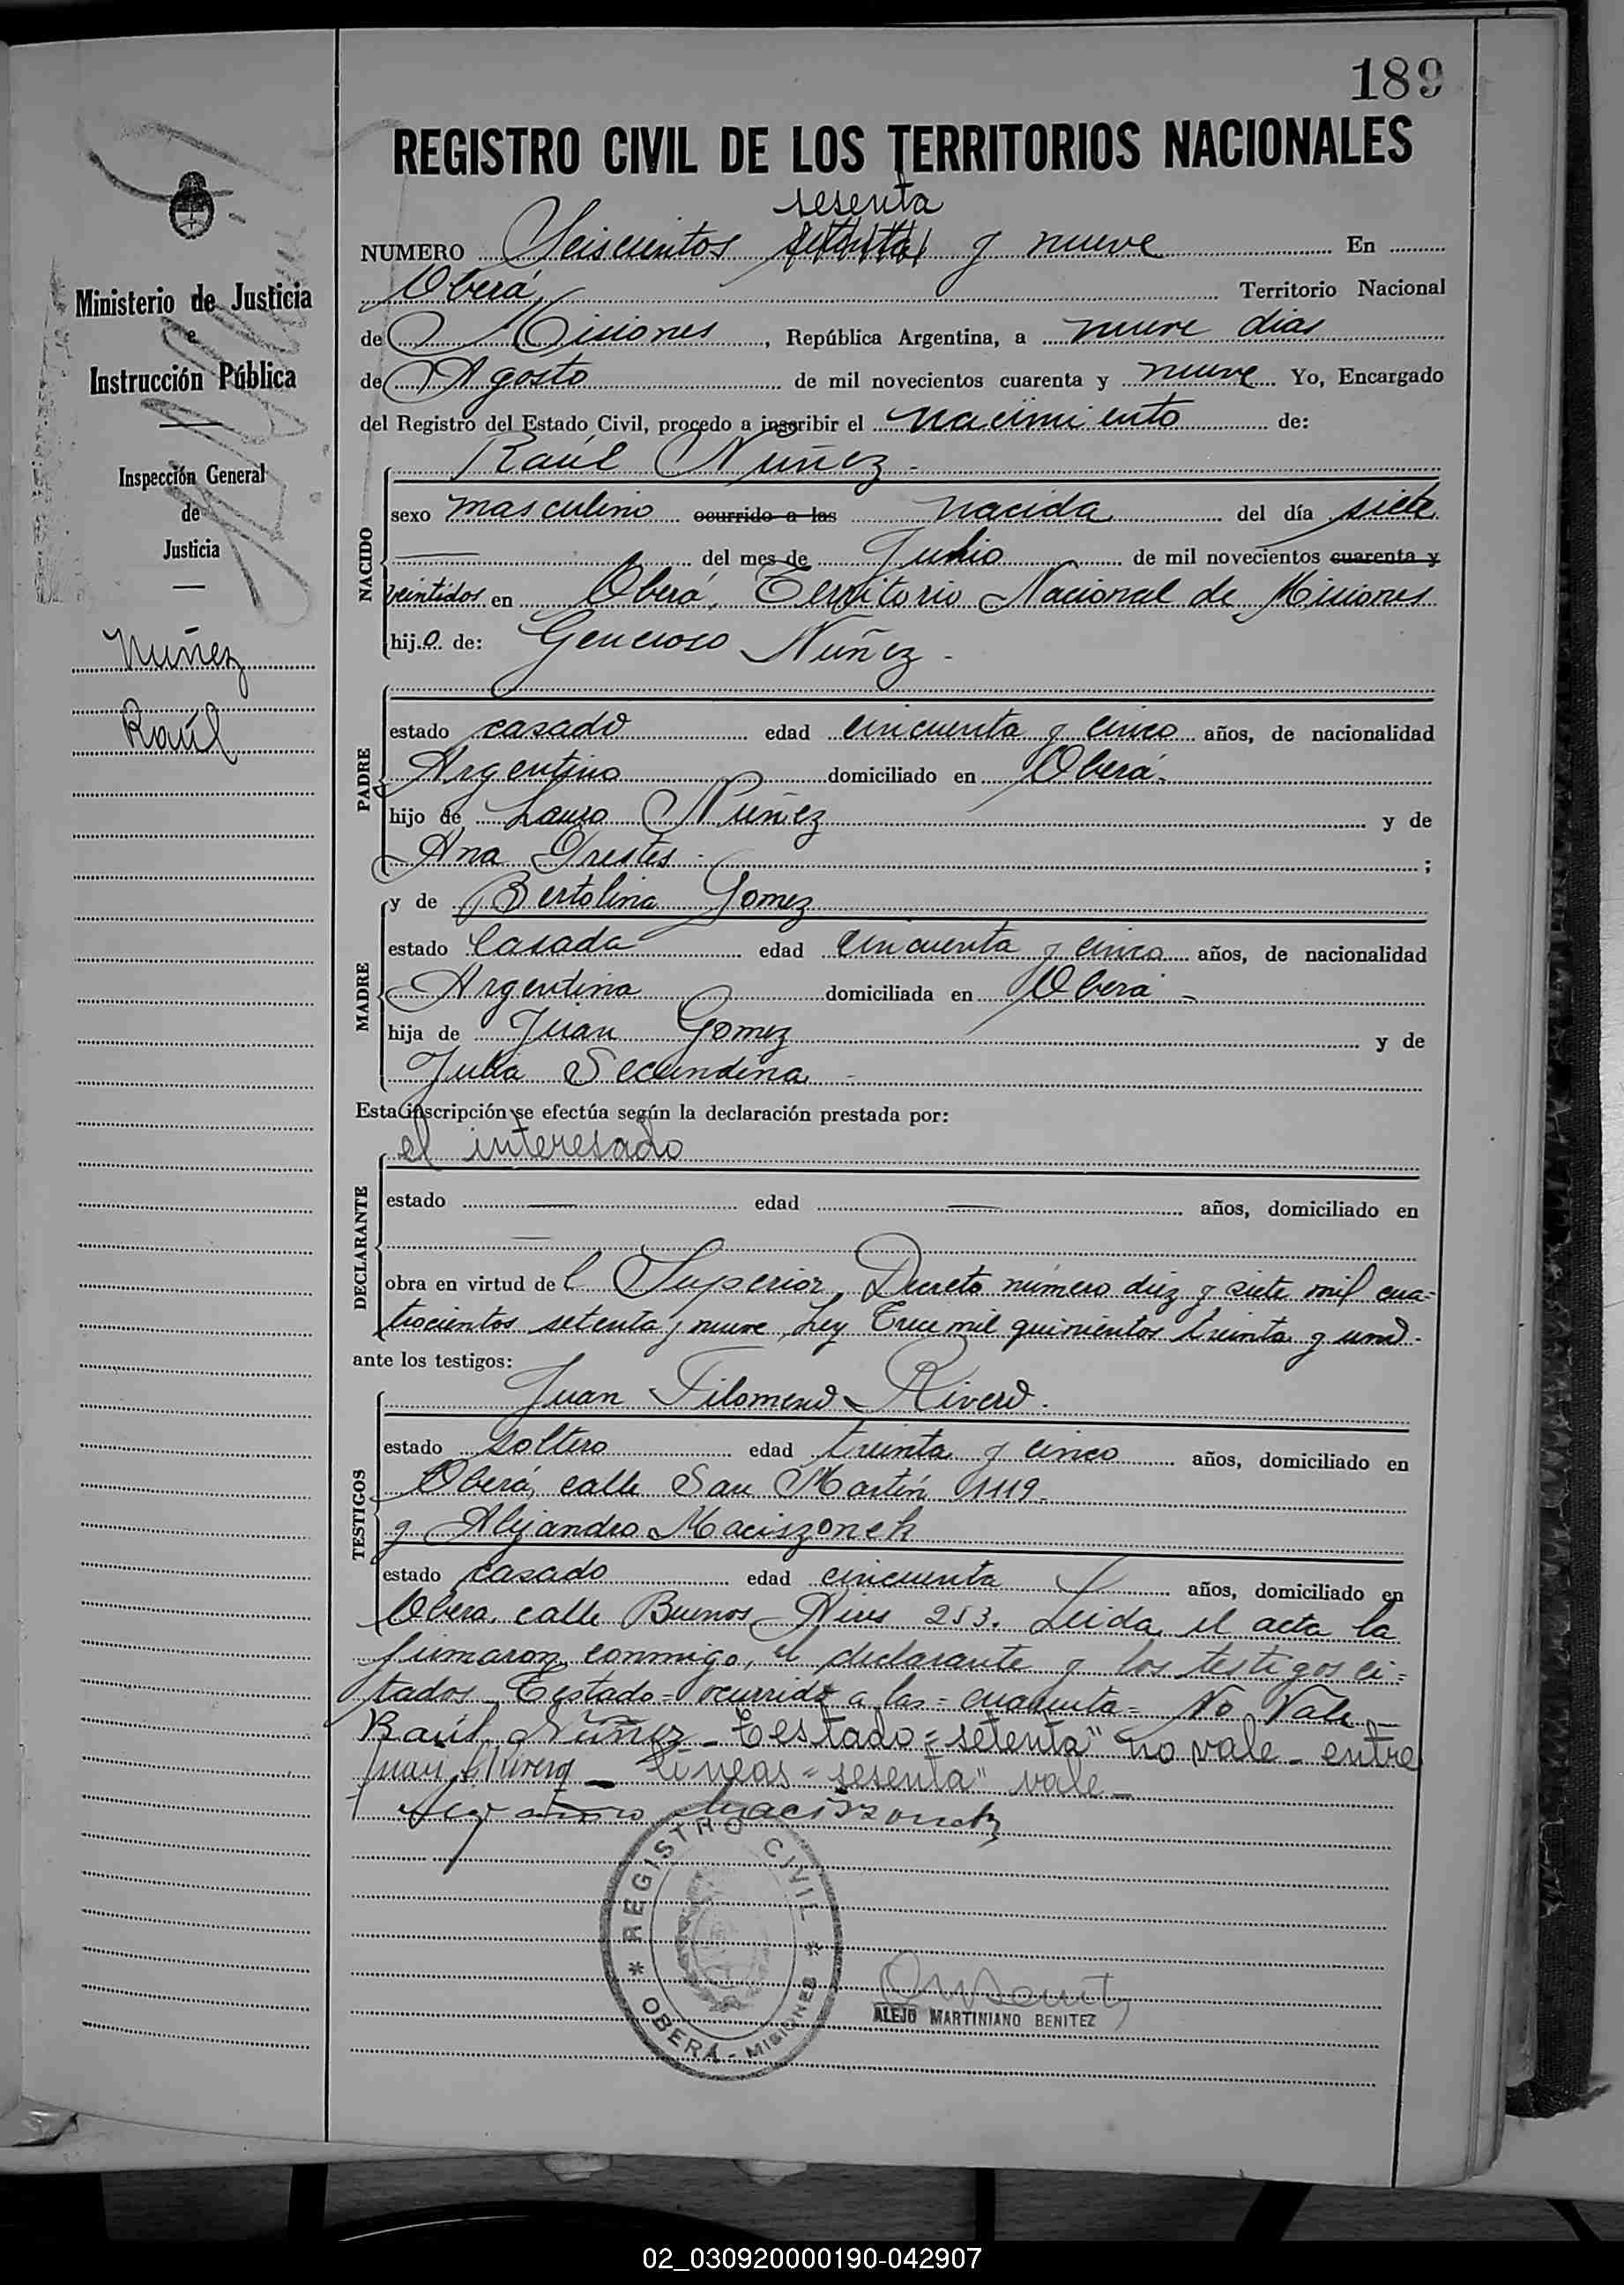 189
REGISTRO CIVIL DE LOS TERRITORIOS NACIONALES
sesenta
NUMERO Seiscientos setenta y nueve En
Oberá, Territorio Nacional
de Misiones, República Argentina, a nueve dias
de Agosto de mil novecientos cuarenta y nueve Yo, Encargado
del Registro del Estado Civil, procedo a inscribir el nacimiento de:
Raúl Nuñez -
NACIDO
sexo masculino ocurrido a las nacida del día siete
del mes de Junio de mil novecientos cuarenta y
veintidos en Oberá, Territorio Nacional de Misiones
hijo de: Generoso Nuñez -
PADRE
estado casado edad cincuenta y cinco años, de nacionalidad
Argentino domiciliado en Oberá -
hijo de Lauro Nuñez y de
Ana Prestes - ;
MADRE
y de Bertolina Gomez
estado Casada edad cincuenta y cinco años, de nacionalidad
Argentina domiciliada en Oberá -
hija de Juan Gomez y de
Julia Secundina -
Esta inscripción se efectúa según la declaración prestada por:
el interesado
DECLARANTE
estado edad años, domiciliado en
obra en virtud del Superior Decreto número diez y siete mil cua=
trocientos setenta y nueve, Ley Trece mil quinientos treinta y uno -
ante los testigos:
TESTIGOS
Juan Filomeno Rivero -
estado soltero edad treinta y cinco años, domiciliado en
Oberá, calle San Martín 1119 -
y Alejandro Maciszonek
estado casado edad cincuenta años, domiciliado en
Oberá, calle Buenos Aires 253. Leida el acta la
firmaron conmigo, el declarante y los testigos ci=
tados. Testado = ocurrido a las = cuarenta = No Vale -
Raúl Nuñez - Testado = setenta" no vale - entre
Juan F. Rivero - líneas = sesenta" vale -
Alejandro Maciszonek
REGISTRO CIVIL
* OBERÁ - MISIONES *
ALEJO MARTINIANO BENITEZ
Ministerio de Justicia
e
Instrucción Pública
Inspección General
de
Justicia
Nuñez
Raúl
02_030920000190-042907